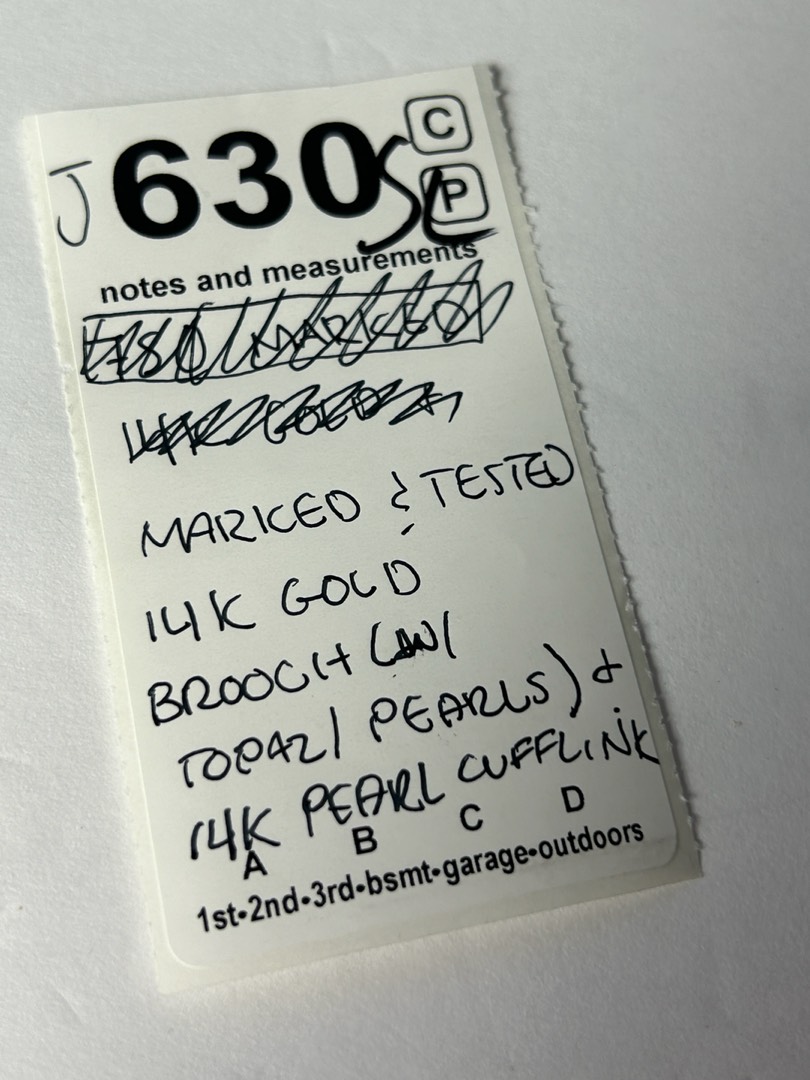 J 630 SL C
P
notes and measurements
MARKED & TESTED
14K GOLD
BROOCH (W/
TOPAZ/ PEARLS) &
14K PEARL CUFFLINK
A B C D
1st•2nd•3rd•bsmt•garage•outdoors